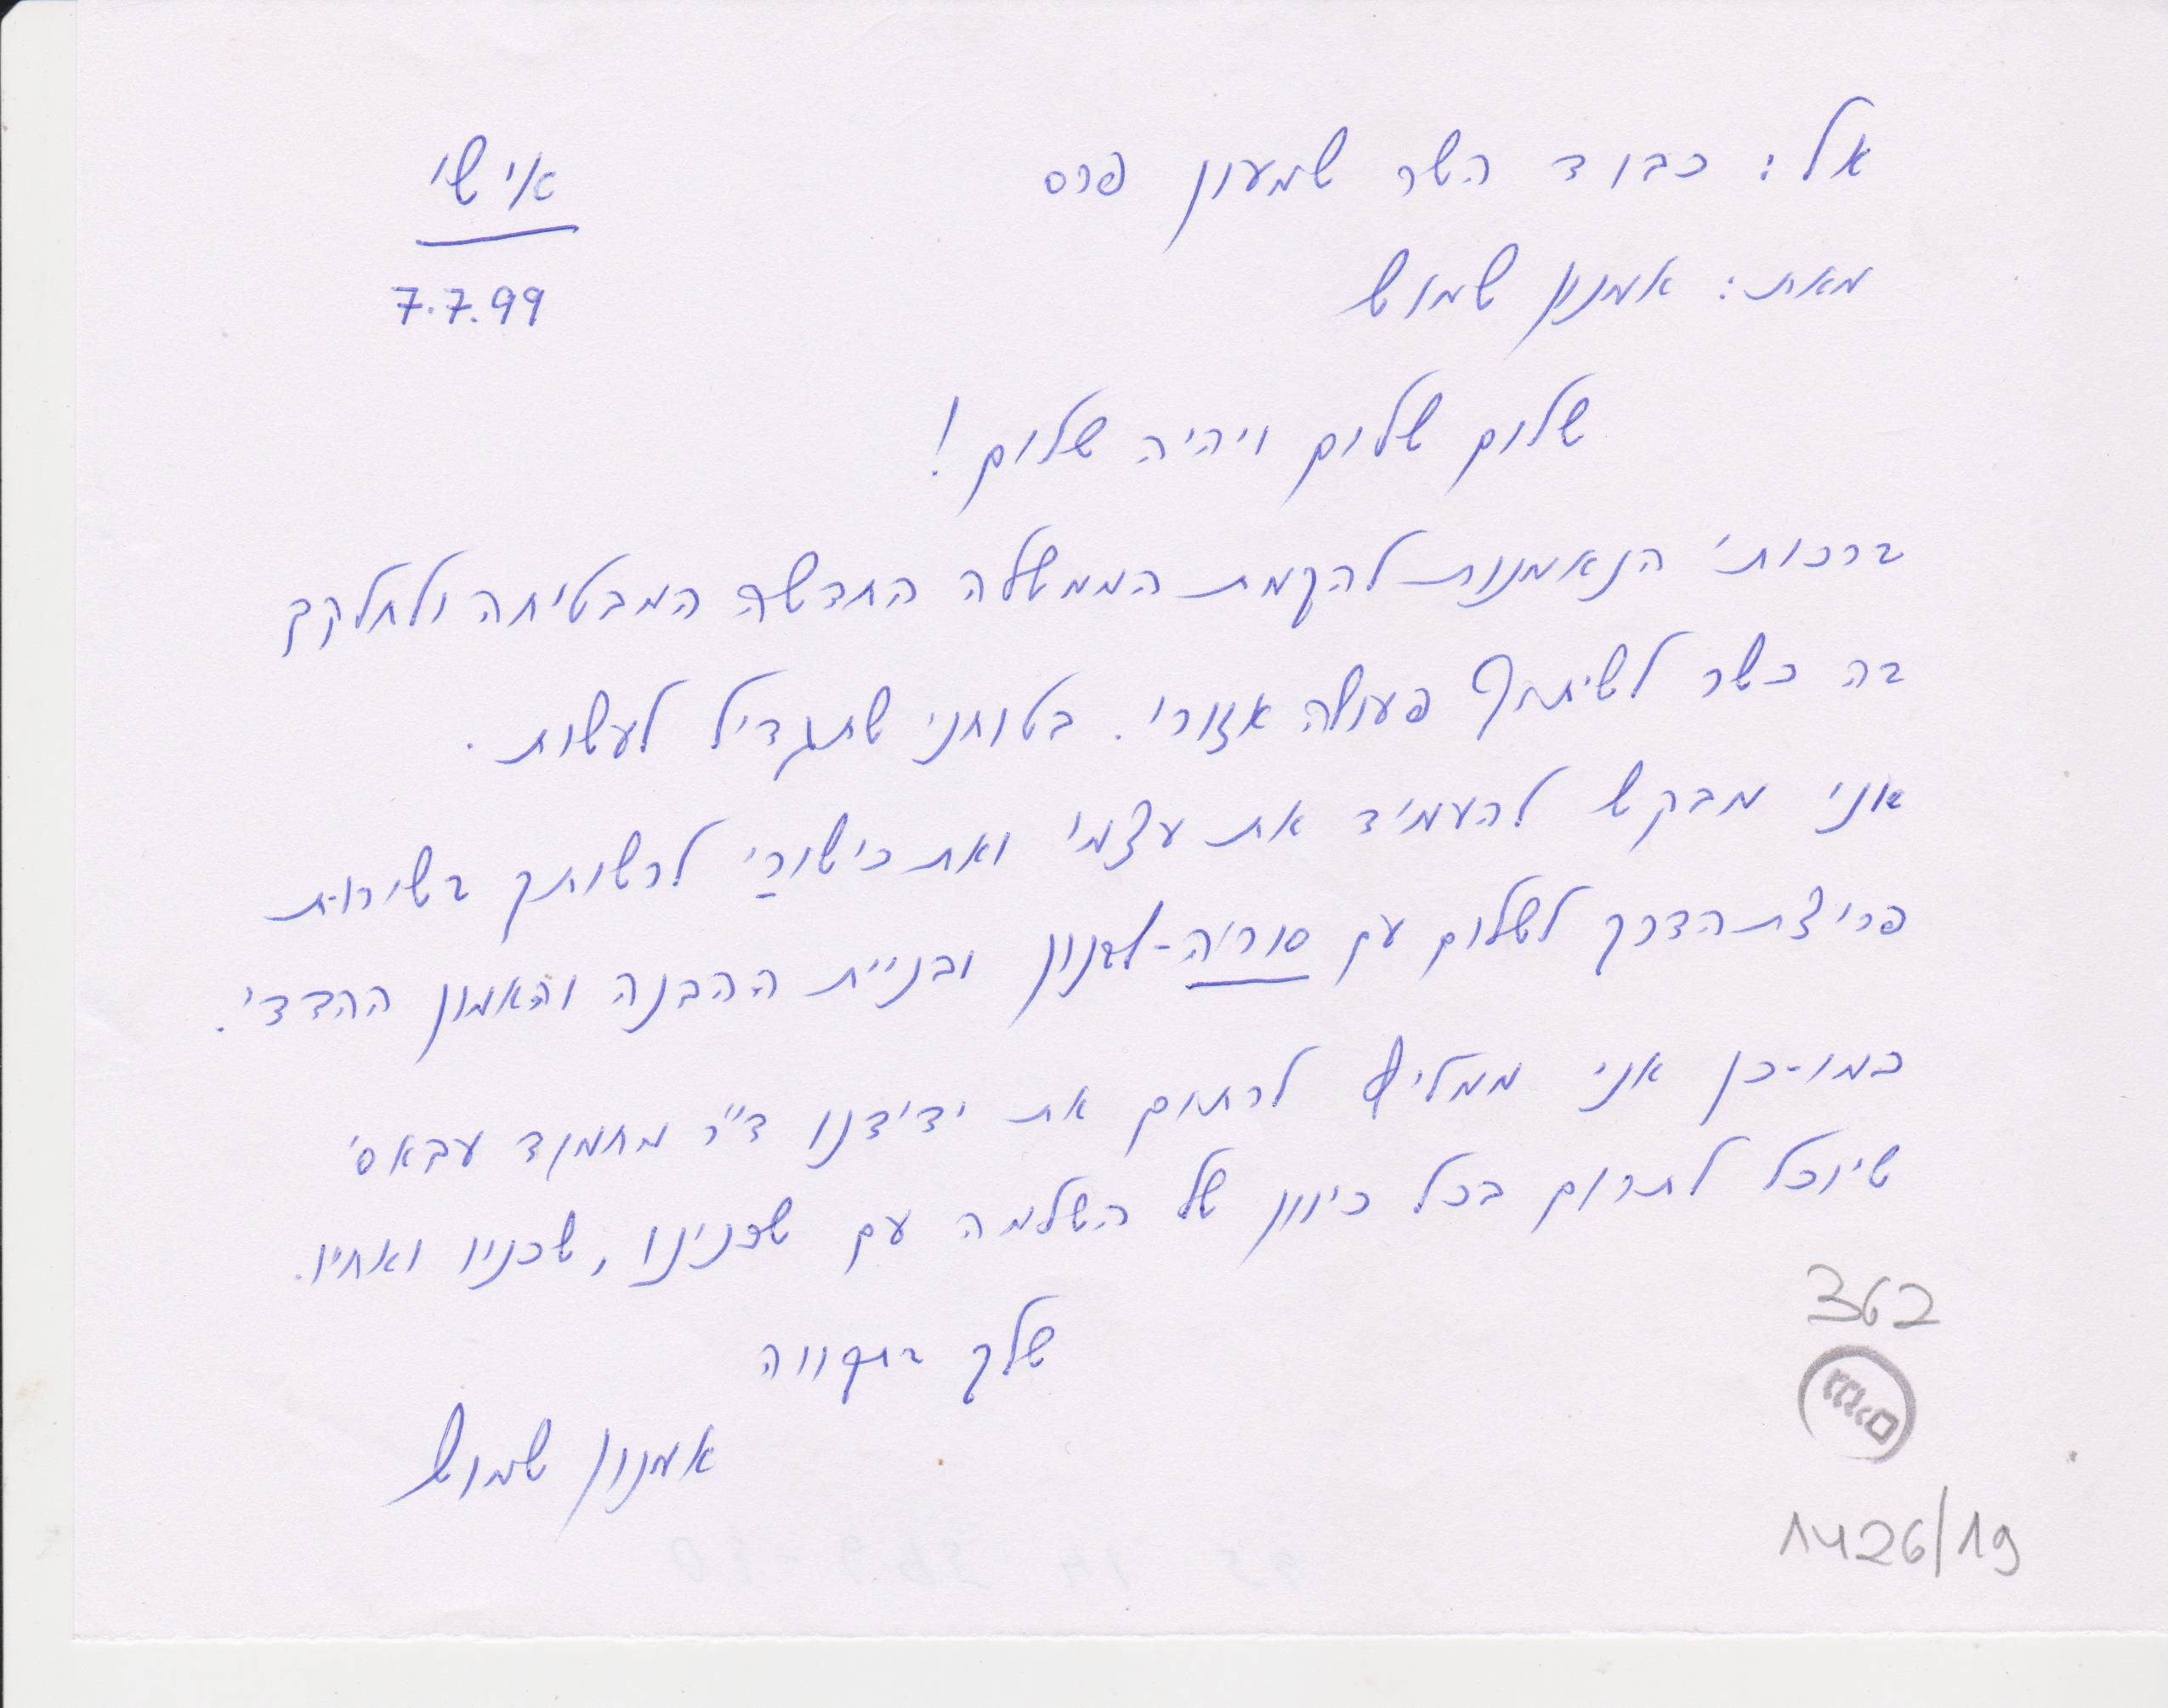 אל: כבוד השר שמעון פרס
אישי
מאת: אמנון שמוש
7.7.99
שלום שלום ויהיה שלום!
ברכותי הנאמנות להקמת הממשלה החדשה המבטיחה ולחלקך
בה כשר לשיתוף פעולה אזורי. בטוחני שתגדיל לעשות.
אני מבקש להעמיד את עצמי ואת כישורַי לרשותך בשירות
פריצת הדרך לשלום עם סוריה-לבנון ובניית ההבנה והאמון ההדדי.
כמו-כן אני ממליץ לרתום את ידידנו ד"ר מחמוד עבאסי
שיוכל לתרום בכל כיוון של השלמה עם שכנינו, שכניו ואחיו.
שלך בתקווה
אמנון שמוש
362
1426/19